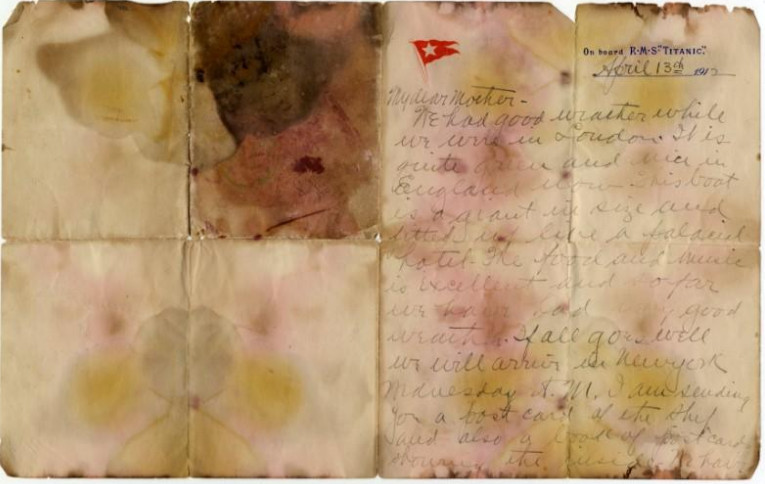 On board R·M·S "TITANIC".
April 13th 1912
My dear Mother -
We had good weather while
we were in London. It is
quite green and nice in
England now. This boat
is a giant in size and
fitted up like a palacial
hotel. The food and music
is excellent and so far
we have had very good
weather. If all goes well
we will arrive in New York
Wednesday A.M. I am sending
you a post card of the ship
and also a book of post cards
showing the inside